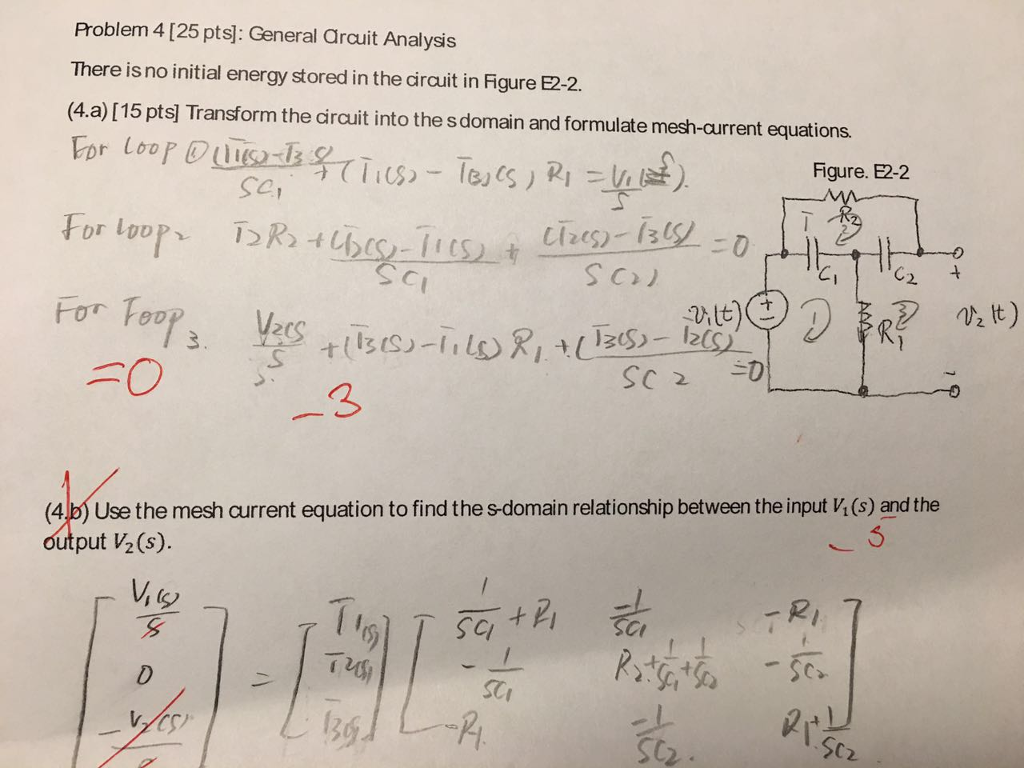 Problem 4 [25 pts]: General Circuit Analysis
There is no initial energy stored in the circuit in Figure E2-2.
(4.a) [15 pts] Transform the circuit into the s domain and formulate mesh-current equations.
For Loop ① (I1(s)-I3 s)/SC1 + (I1(s) - I3(s) R1 = V1(s)/S
Figure. E2-2
For Loop2 I2R2 + (I2(s)-I1(s)/SC1 + (I2(s)-I3(s)/SC2) = 0
For Foop3. V2(s/S + (I3(s)-I1(s) R1 + (I3(s)-I2(s)/SC2 =0
=0
-3
I R2 2
C1 C2
+
v1(t) + - 1 R1 3 v2(t)
-
(4.b) Use the mesh current equation to find the s-domain relationship between the input V1(s) and the
output V2(s).
-5
[V1(s)/S = [I1(s) [1/SC1 + R1 -1/SC1 -R1
0 I2(s) -1/SC1 R2+1/SC1+1/SC2 -1/SC2
-V2(s) I3(s) -R1 -1/SC2. R1+1/SC2